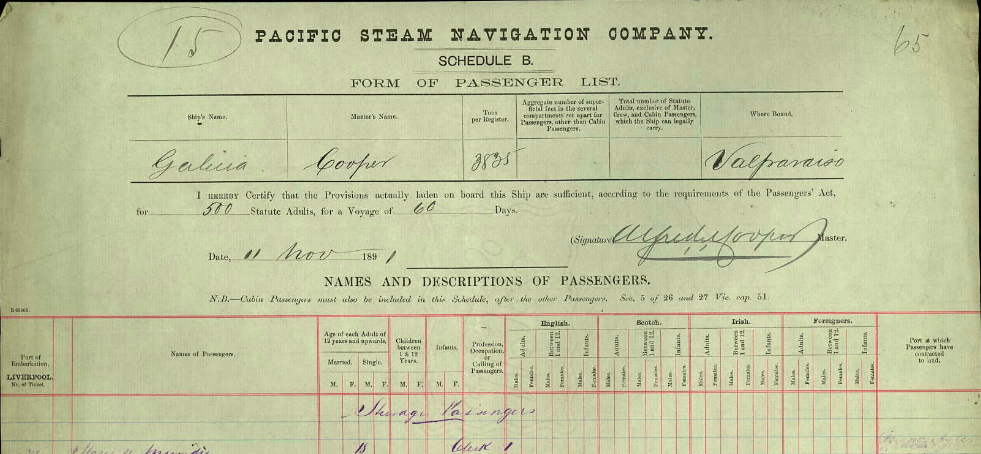 15
65
PACIFIC STEAM NAVIGATION COMPANY.
SCHEDULE B.
FORM OF PASSENGER LIST.
Ship's Name. Master's Name. Tons per Register. Aggregate number of superficial feet in the several compartments set apart for Passengers, other than Cabin Passengers. Total number of Statute Adults, exclusive of Master, Crew, and Cabin Passengers, which the Ship can legally carry. Where Bound.
Galicia Cooper 3835 Valparaiso
I HEREBY Certify that the Provisions actually laden on board this Ship are sufficient, according to the requirements of the Passengers' Act,
for 500 Statute Adults, for a Voyage of 60 Days.
(Signature) Alfred Cooper Master.
Date, 11 Nov 1891
NAMES AND DESCRIPTIONS OF PASSENGERS.
N.B.—Cabin Passengers must also be included in this Schedule, after the other Passengers. Sec. 5 of 26 and 27 Vic. cap. 51.
Port of Embarkation. LIVERPOOL. No. of Ticket. Names of Passengers. Age of each Adult of 12 years and upwards. Children between 1 & 12 Years. Infants. Profession, Occupation, or Calling of Passengers. English. Scotch. Irish. Foreigners. Port at which Passengers have contracted to land.
Married. Single.
M. F. M. F. M. F. M. F.
Adults. Between 1 and 12. Infants. Adults. Between 1 and 12. Infants. Adults. Between 1 and 12. Infants. Adults. Between 1 and 12. Infants.
Males. Females. Males. Females. Males. Females. Males. Females. Males. Females. Males. Females. Males. Females. Males. Females. Males. Females. Males. Females. Males. Females. Males. Females.
Steerage Passengers
18 Clerk 1